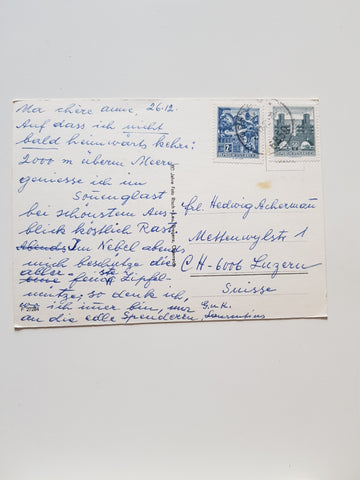 Ma chère amie, 26.12.
Auf dass ich nicht
bald heimwärts kehr:
2000 m überm Meer
geniesse ich im
Sonnenglast
bei schönstem Aus-
blick köstlich Rast.
Abends Im Nebel abends
mich beschütze die
aller - ste
feine Zipfel-
mütze; so denk ich,
wo ich imer bin, nur
an die edle Spenderin,
G.u.K.
Laurentius
frl. Hedwig Achermann
Mettenwylstr 1
CH-6006 Luzern
Suisse